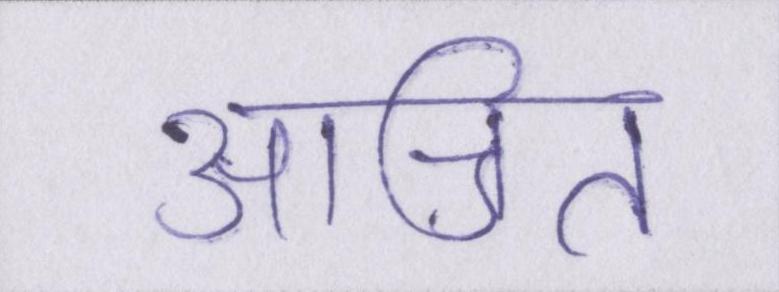 आश्रित